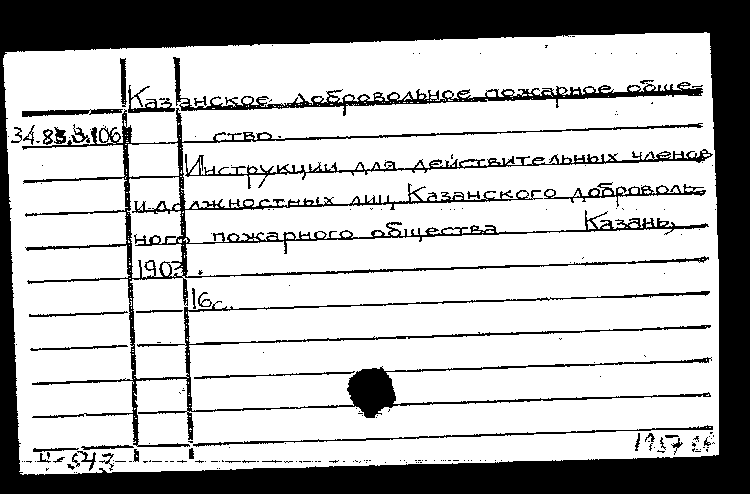 Казанское добровольное пожарное обще-
34.83.8.106
ство.
Инструкции для действительных членов
и должностных лиц Казанского доброволь-
ного пожарного общества Казань,
1903.
16с.
4-543
1957